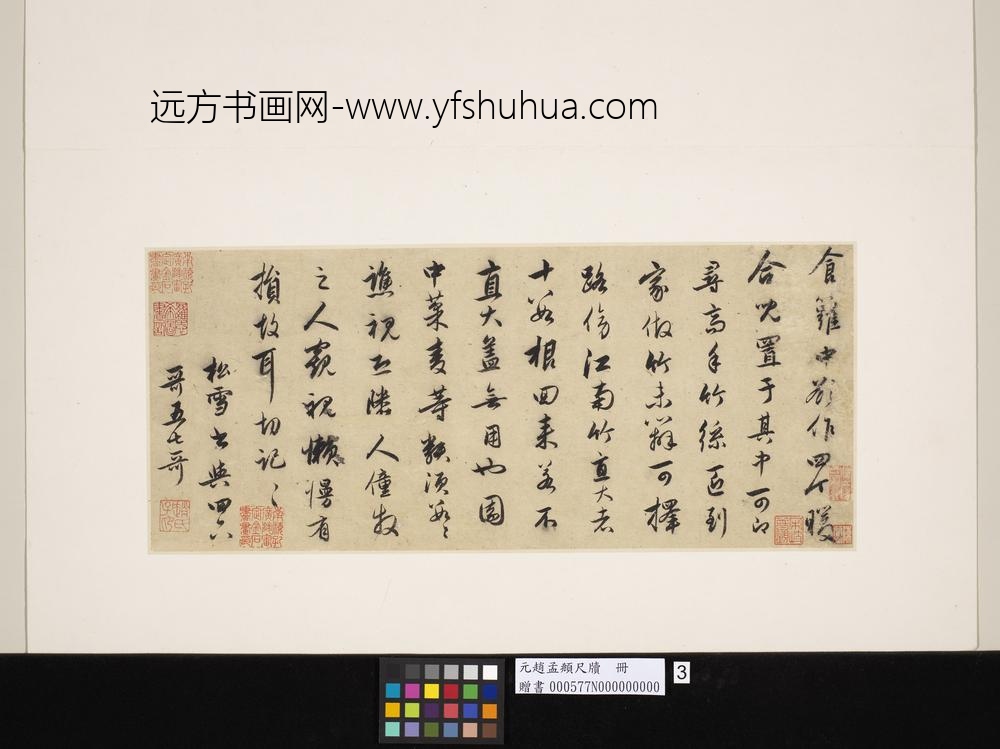 远方书画网-www.yfshuhua.com
食籮中欲作四个暖
合呪置于其中可即
尋高手竹絲匠到
家做竹未辦可擇
路傍江南竹直大者
十數根回来若不
直大盖無用也園
中菜麦等頻須數〻
譙視不勝人僮牧
之人覷視懒慢有
損故耳切記〻
松雪書與四六
哥五七哥
元趙孟頫尺牘 冊
贈書 000577N000000000
3